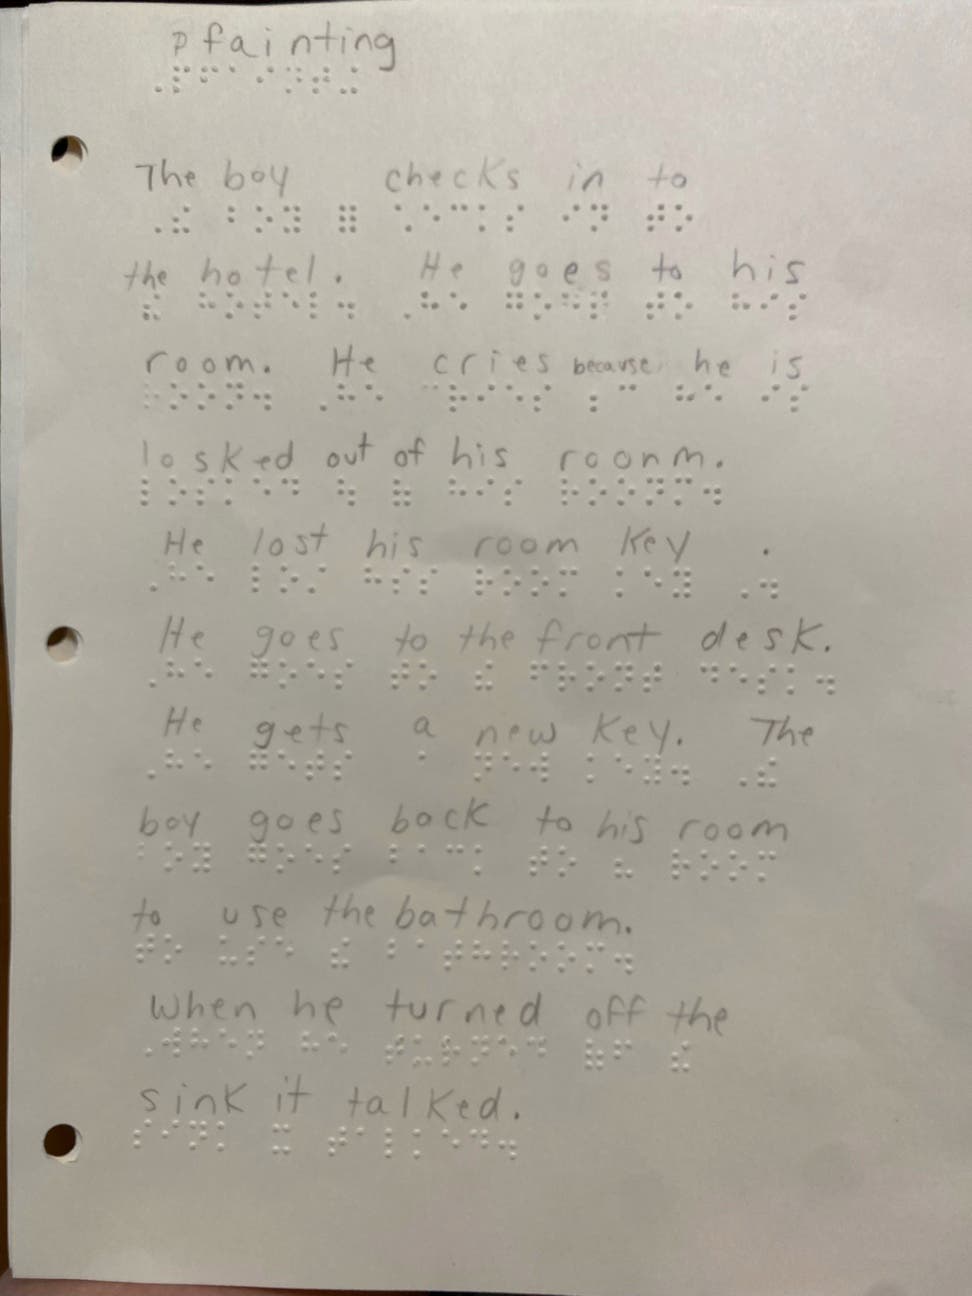 pfainting
The boy checks in to
the hotel. He goes to his
room. He cries because he is
losked out of his roonm.
He lost his room key .
He goes to the front desk.
He gets a new key. The
boy goes back to his room
to use the bathroom.
When he turned off the
sink it talked.